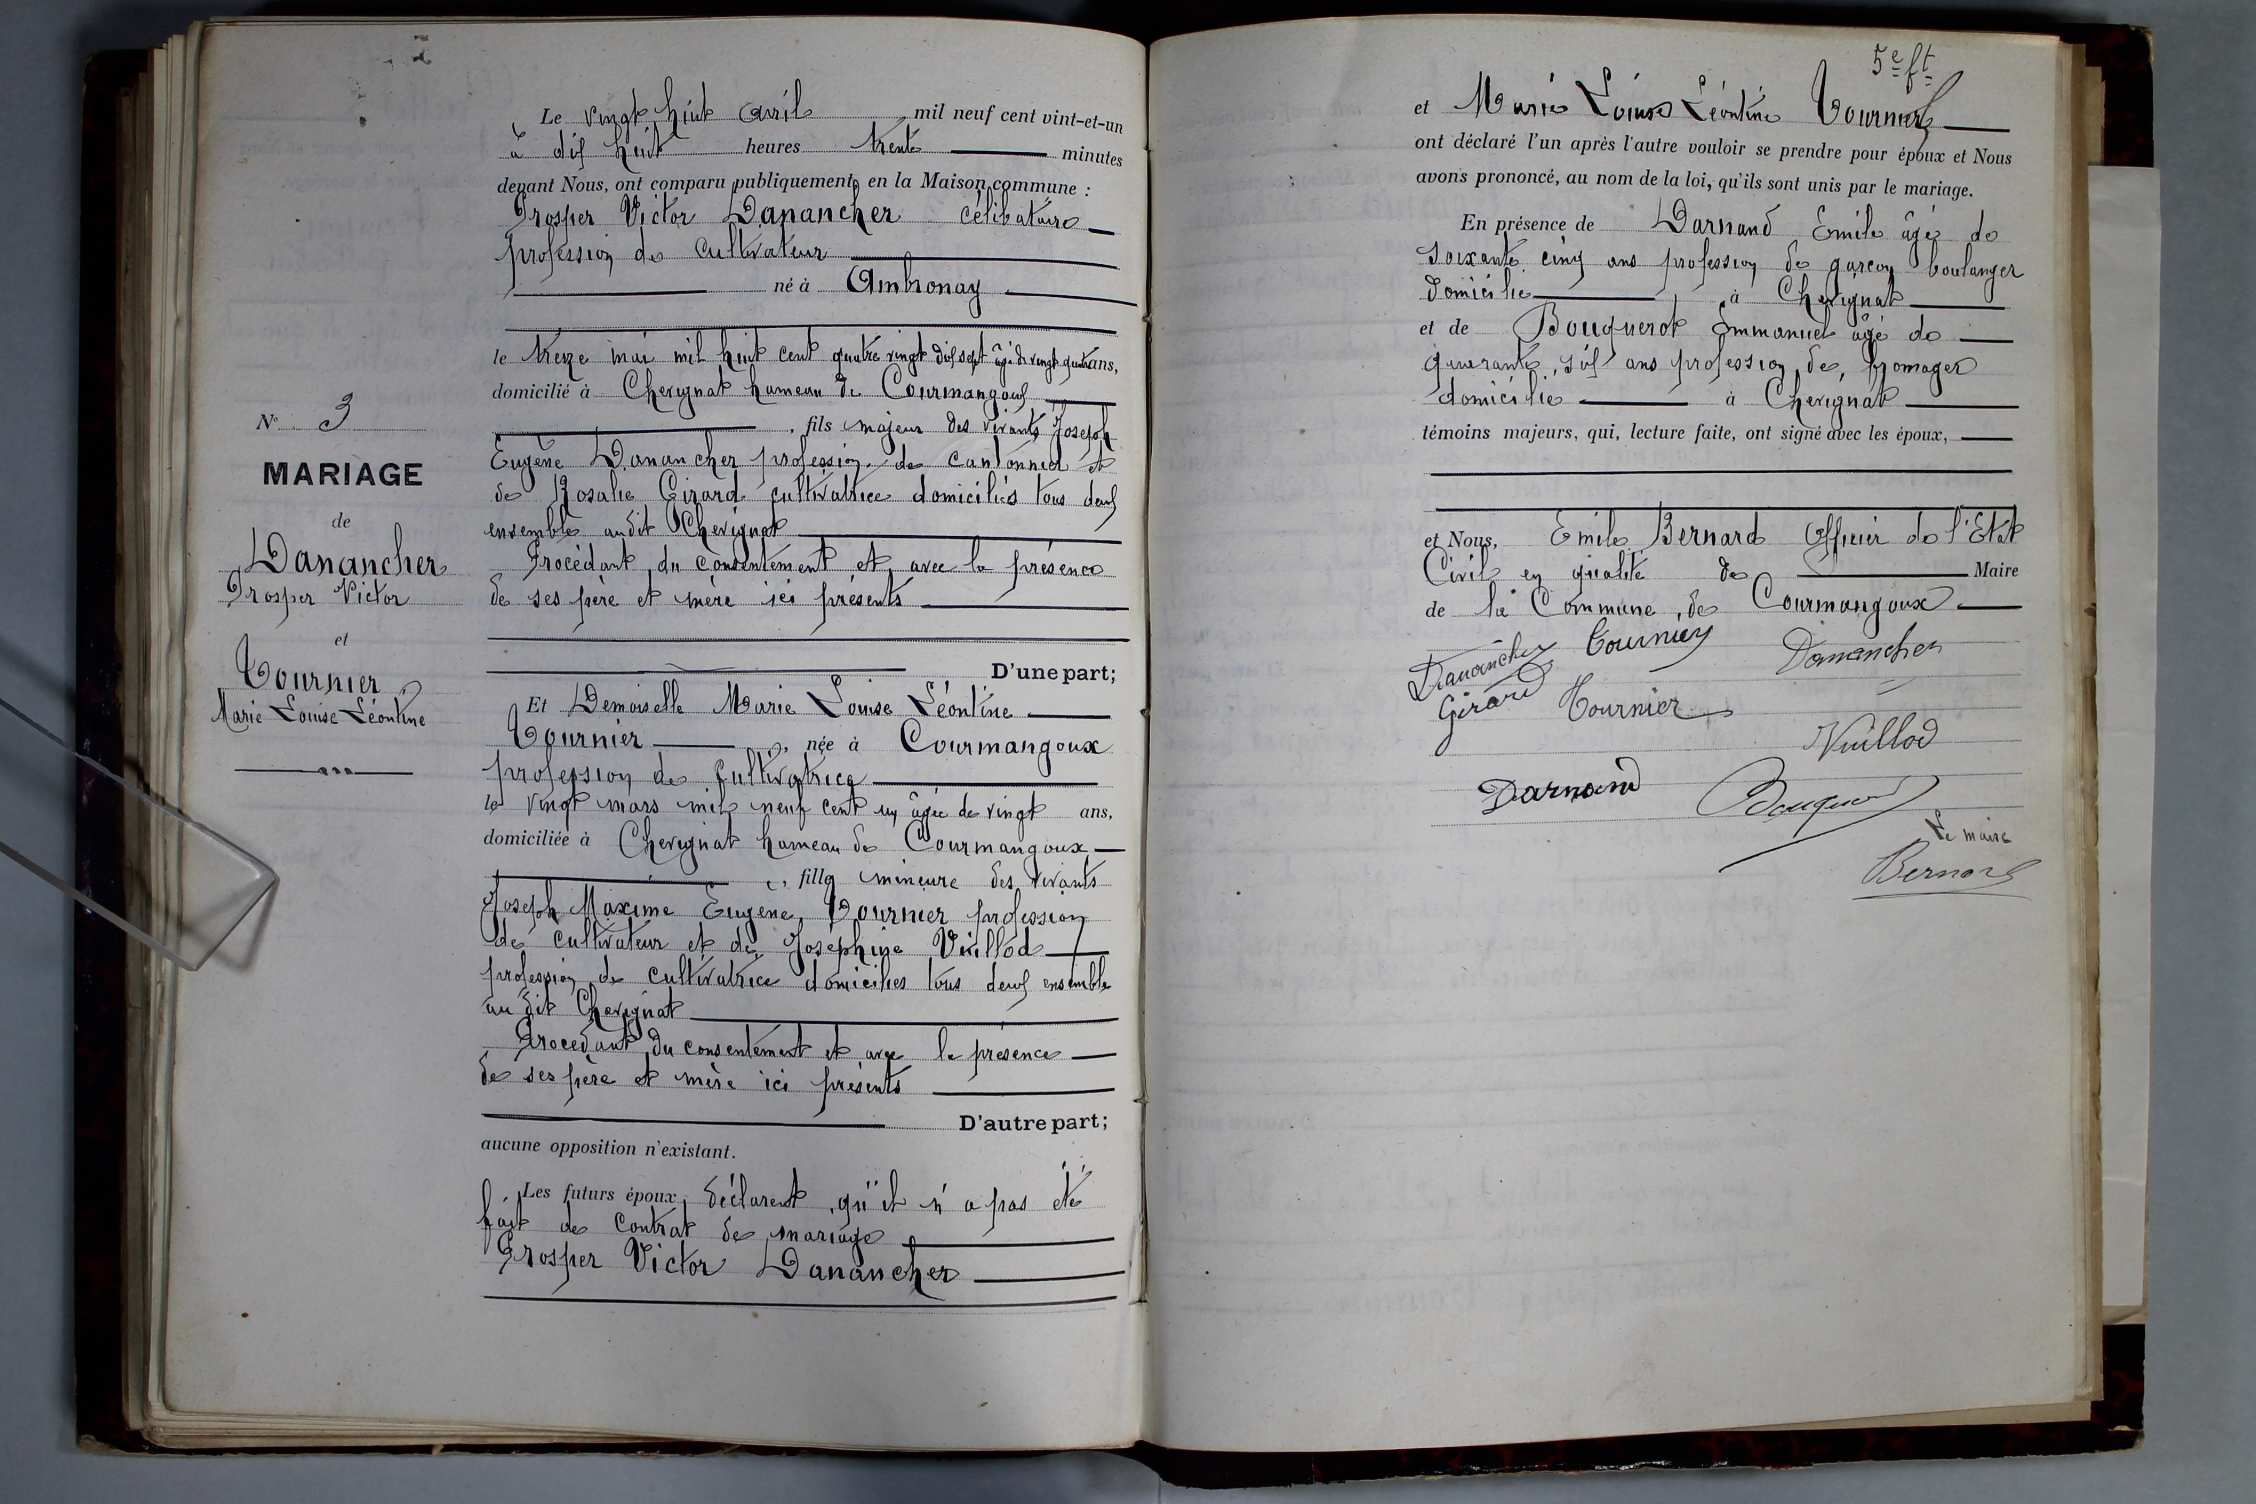 N° 3
MARIAGE
de
Danancher
Prosper Victor
et
Tournier
Marie Louise Léontine
Le vingt huit avril mil neuf cent vint-et-un
à dix huit heures trente minutes
devant Nous, ont comparu publiquement en la Maison commune :
Prosper Victor Danancher célibataire
profession de cultivateur
né à Ambronay
le treize mai mil huit cent quatre vingt dix sept âgé de vingt quatre ans,
domicilié à Chevignat hameau de Courmangoux
, fils majeur des vivants Joseph
Eugène Danancher profession de cantonnier et
de Rosalie Girard cultivatrice domiciliés tous deux
ensemble audit Chevignat
Procédant du consentement et avec la présence
de ses père et mère ici présents
D'une part;
Et Demoiselle Marie Louise Léontine
Tournier, née à Courmangoux
profession de cultivatrice
le vingt mars mil neuf cent un âgée de vingt ans,
domiciliée à Chevignat hameau de Courmangoux
, fille mineure des vivants
Joseph Maxime Eugène Tournier profession
de cultivateur et de Joséphine Vuillod
profession de cultivatrice domiciliés tous deux ensemble
au dit Chevignat
Procédant du consentement et avec la présence
de ses père et mère ici présents
D'autre part;
aucune opposition n'existant.
Les futurs époux déclarent qu'il n'a pas été
fait de contrat de mariage
Prosper Victor Danancher
5e ft
et Marie Louise Léontine Tournier
ont déclaré l'un après l'autre vouloir se prendre pour époux et Nous
avons prononcé, au nom de la loi, qu'ils sont unis par le mariage.
En présence de Darnand Emile âgé de
soixante cinq ans profession de garçon boulanger
domicilié à Chevignat
et de Bouquerot Emmanuel âgé de
quarante six ans profession de fromager
domicilié à Chevignat
témoins majeurs, qui, lecture faite, ont signé avec les époux,
et Nous, Emile Bernard Officier de l'Etat
Civil en qualité de Maire
de la Commune de Courmangoux
Danancher Tournier Danancher
Girard Tournier
Vuillod
Darnand
Le maire
Bernard